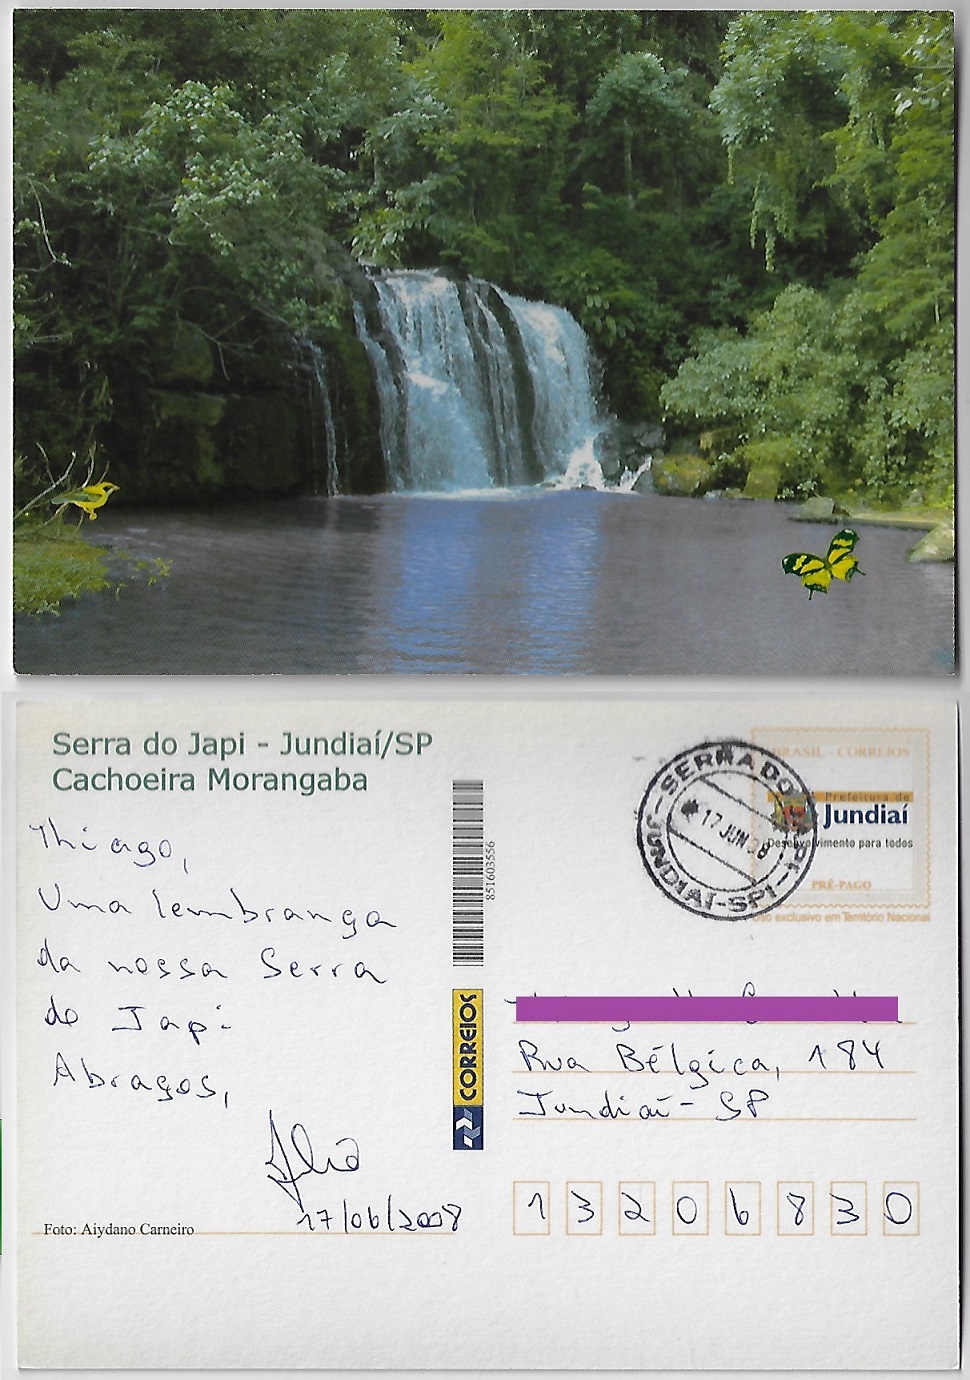 Serra do Japi - Jundiaí/SP
Cachoeira Morangaba
Thiago,
Uma lembrança
da nossa Serra
do Japi
Abraços,
17/06/2008
Foto: Aiydano Carneiro
851603556
CORREIOS
SERRA DO JAPI - JUNDIAÍ-SP
17 JUN 08
BRASIL - CORREIOS
Prefeitura de
Jundiaí
Desenvolvimento para todos
PRÉ-PAGO
Uso exclusivo em Território Nacional
Rua Bélgica, 184
Jundiaí - SP
13206830